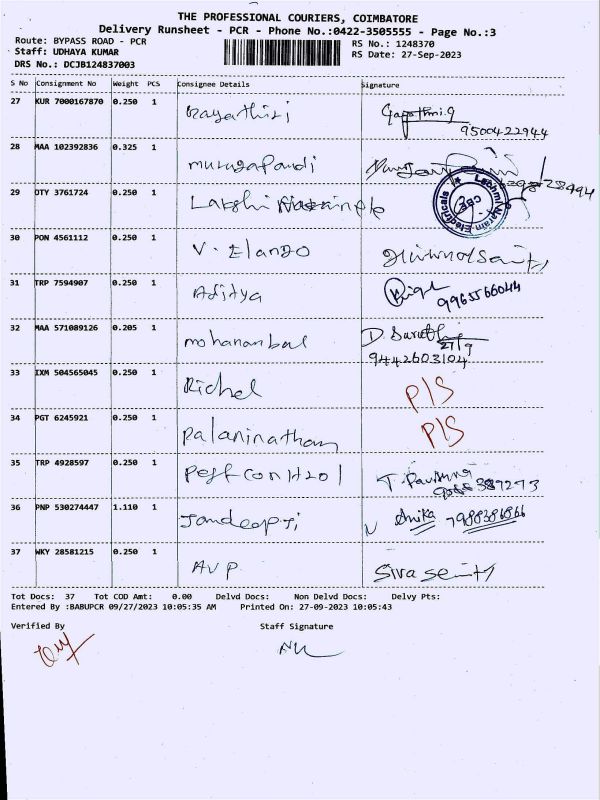 THE PROFESSIONAL COURIERS, COIMBATORE
Delivery Runsheet - PCR - Phone No.:0422-3505555 - Page No.:3
Route: BYPASS ROAD - PCR
RS No.: 1248370
Staff: UDHAYA KUMAR
RS Date: 27-Sep-2023
DRS No.: DCJB124837003
S No Consignment No Weight PCS Consignee Details Signature
27 KUR 7000167870 0.250 1 Gayathiri Gayathri.g
9500422944
28 MAA 102392836 0.325 1 murugapandi
29 OTY 3761724 0.250 1 Lakshi
Lakshmi Narain Electricals CBE
30 PON 4561112 0.250 1 V. Elango
31 TRP 7594907 0.250 1 Aditya
9965566044
32 MAA 571089126 0.205 1 mohanan bal D. 
27/9
9442603104
33 IXM 504565045 0.250 1 Richel P/S
34 PGT 6245921 0.250 1 Palaninathan P/S
35 TRP 4928597 0.250 1 Pest Control T.
36 PNP 530274447 1.110 1 
37 WKY 28581215 0.250 1 AVP Siva
Tot Docs: 37 Tot COD Amt: 0.00 Delvd Docs: Non Delvd Docs: Delvy Pts:
Entered By :BABUPCR 09/27/2023 10:05:35 AM Printed On: 27-09-2023 10:05:43
Verified By Staff Signature